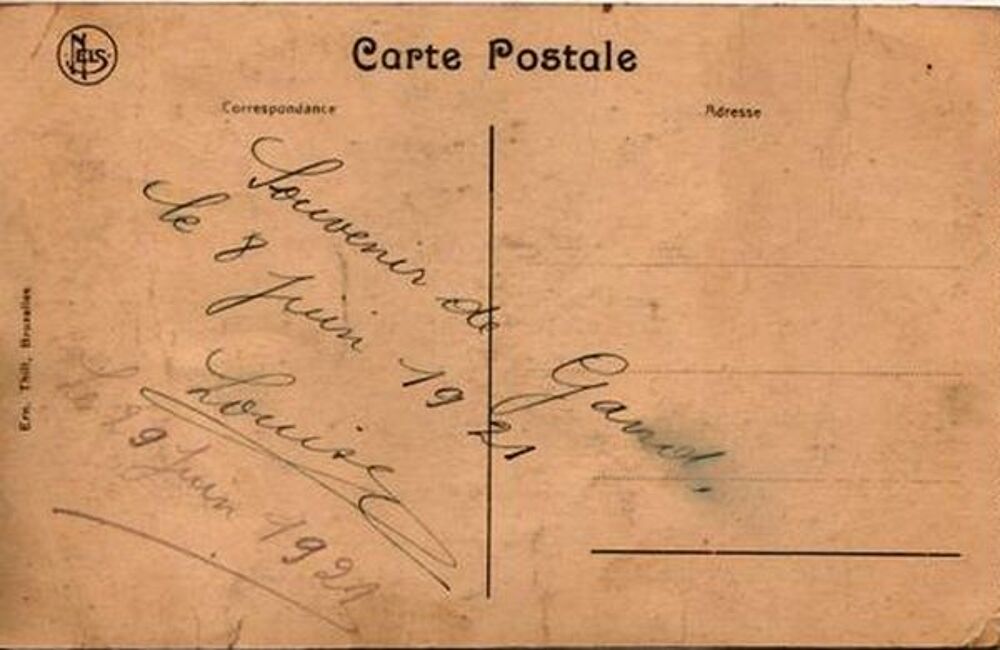 NELS
Carte Postale
Correspondance
Adresse
Souvenir de Gand.
le 8 Juin 1921
Louise
le 29 Juin 1921
Ern. Thill, Bruxelles